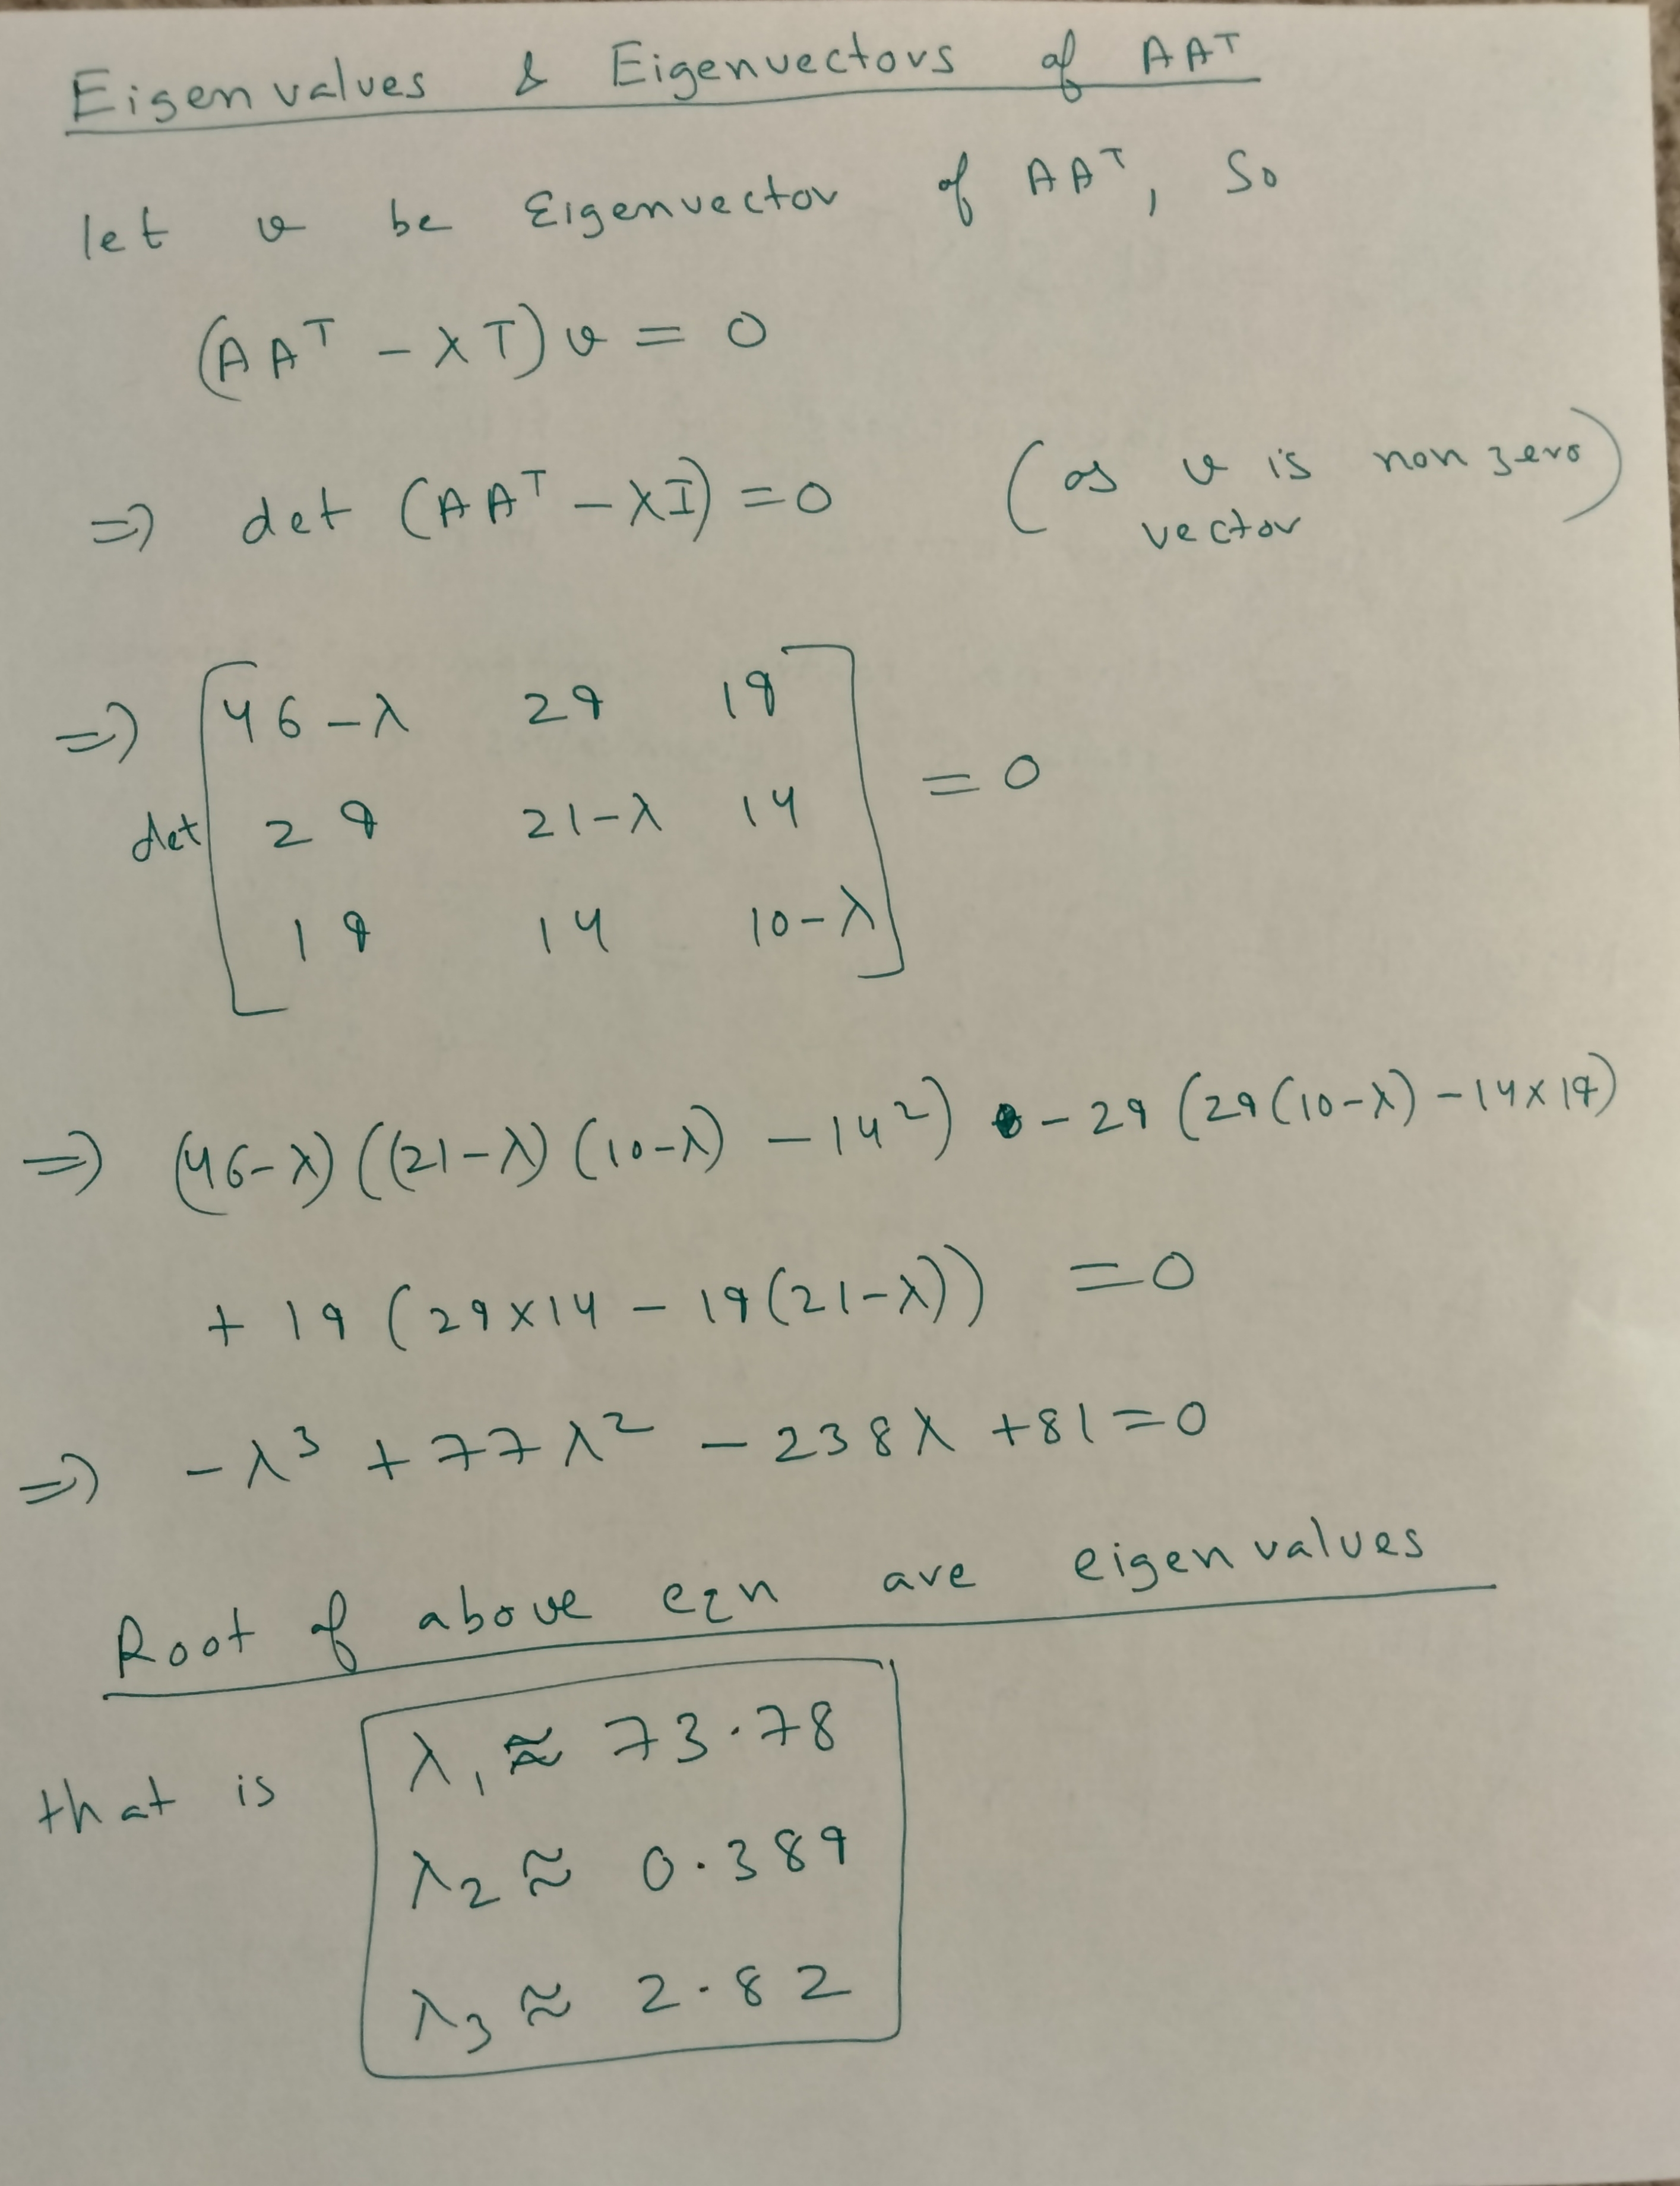 Eigenvalues & Eigenvectors of AAᵀ
let v be Eigenvector of AAᵀ, So
(AAᵀ - λI) v = 0
=> det (AAᵀ - λI) = 0 (as v is non zero
vector)
=> det [46-λ 29 19
29 21-λ 14
19 14 10-λ] = 0
=> (46-λ)((21-λ)(10-λ) - 14²) - 29(29(10-λ) - 14×19)
+ 19(29×14 - 19(21-λ)) = 0
=> -λ³ + 77λ² - 238λ + 81 = 0
Root of above eqn are eigenvalues
that is λ₁ ≈ 73.78
λ₂ ≈ 0.389
λ₃ ≈ 2.82